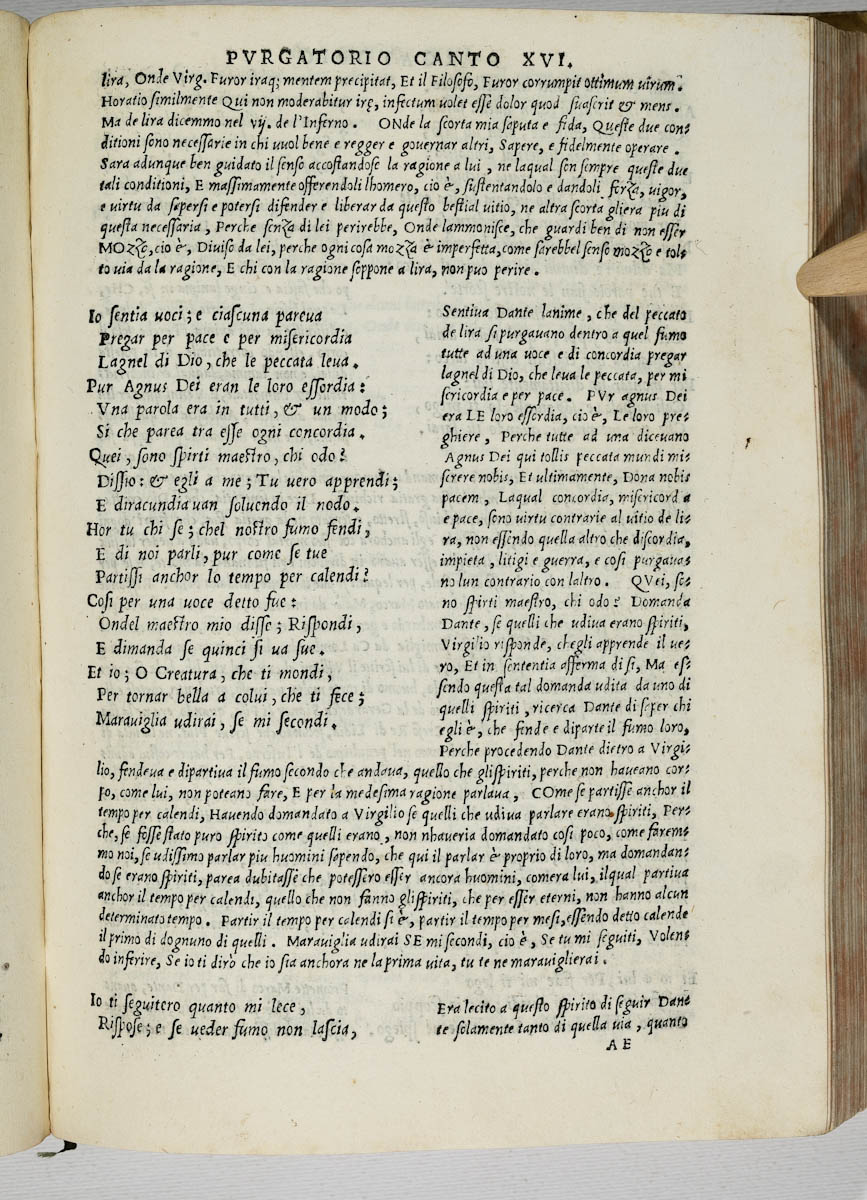 PVRGATORIO CANTO XVI.
lira, Onde Virg. Furor iraq; mentem precipitat, Et il Filosofo, Furor corrumpit ottimum uirum.
Horatio similmente Qui non moderabitur irę, infectum uolet esse dolor quod suaserit & mens.
Ma de lira dicemmo nel vij. de l'Inferno. ONde la scorta mia saputa e fida, Queste due con-
ditioni sono necessarie in chi vuol bene e regger e gouernar altri, Sapere, e fidelmente operare.
Sara adunque ben guidato il senso accostandose la ragione a lui, ne laqual son sempre queste due
tali conditioni, E massimamente offerendoli lhomero, cio è, sustentandolo e dandoli forza, uigor,
e uirtu da sapersi e potersi difender e liberar da questo bestial uitio, ne altra scorta gliera piu di
questa necessaria, Perche senza di lei perirebbe, Onde lammonisce, che guardi ben di non esser
MOzzo, cio è, Diuiso da lei, perche ogni cosa mozza è imperfetta, come sarebbel senso mozzo e tol-
to uia da la ragione, E chi con la ragione soppone a lira, non puo perire.
Io sentia uoci; e ciascuna pareua
Pregar per pace e per misericordia
Lagnel di Dio, che le peccata leua.
Pur Agnus Dei eran le loro essordia:
Vna parola era in tutti, & un modo;
Si che parea tra esse ogni concordia.
Quei, sono spirti maestro, chi odo?
Dissio: & egli a me; Tu uero apprendi;
E diracundia uan soluendo il nodo.
Hor tu chi se; chel nostro fumo fendi,
E di noi parli, pur come se tue
Partissi anchor lo tempo per calendi?
Cosi per una uoce detto fue:
Ondel maestro mio disse; Rispondi,
E dimanda se quinci si ua sue.
Et io; O Creatura, che ti mondi,
Per tornar bella a colui, che ti fece;
Marauiglia udirai, se mi secondi.
Sentiua Dante lanime, che del peccato
de lira si purgauano dentro a quel fumo
tutte ad una uoce e di concordia pregar
lagnel di Dio, che leua le peccata, per mi
sericordia e per pace. PVr agnus Dei
era LE loro essordia, cio è, Le loro pre-
ghiere, Perche tutte ad una diceuano
Agnus Dei qui tollis peccata mundi mi-
serere nobis, Et ultimamente, Dona nobis
pacem, Laqual concordia, misericord a
e pace, sono uirtu contrarie al uitio de li-
ra, non essendo quella altro che discordia,
impieta, litigi e guerra, e cosi purgaua-
no lun contrario con laltro. QVei, so-
no spirti maestro, chi odo? Domanda
Dante, se quelli che udiua erano spiriti,
Virgilio risponde, chegli apprende il ue-
ro, Et in sententia afferma di si, Ma es-
sendo questa tal domanda udita da uno di
quelli spiriti, ricerca Dante di saper chi
egli è, che fende e diparte il fumo loro,
Perche procedendo Dante dietro a Virgi-
lio, fendeua e dipartiua il fumo secondo che andaua, quello che glispiriti, perche non haueano cor-
po, come lui, non poteano fare, E per la medesima ragione parlaua, COme se partisse anchor il
tempo per calendi, Hauendo domandato a Virgilio se quelli che udiua parlare erano spiriti, Per-
che, se fosse stato puro spirito come quelli erano, non nhaueria domandato cosi poco, come farem-
mo noi, se udissimo parlar piu huomini sapendo, che qui il parlar è proprio di loro, ma domandan-
do se erano spiriti, parea dubitasse che potessero esser ancora huomini, comera lui, ilqual partiua
anchor il tempo per calendi, quello che non fanno glispiriti, che per esser eterni, non hanno alcun
determinato tempo. Partir il tempo per calendi si è, partir il tempo per mesi, essendo detto calende
il primo di dognuno di quelli. Marauiglia udirai SE mi secondi, cio è, Se tu mi seguiti, Volen-
do inferire, Se io ti dirò che io sia anchora ne la prima uita, tu te ne marauiglierai.
Io ti seguitero quanto mi lece,
Rispose; e se ueder fumo non lascia,
Era lecito a questo spirito di seguir Dan-
te solamente tanto di quella uia, quanto
AE